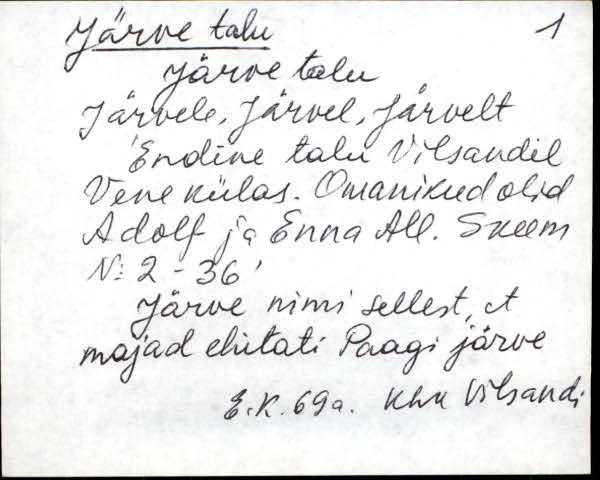 Järve talu 1
Järve talu
Järvele, Järvel, Järvelt
'Endine talu Vilsandil
Vene külas. Omanikud olid
Adolf ja Enna All. Skeem
N: 2 - 36'
Järve nimi sellest, et
majad ehitati Paagi järve
E.K. 69a. Khk Vilsandi